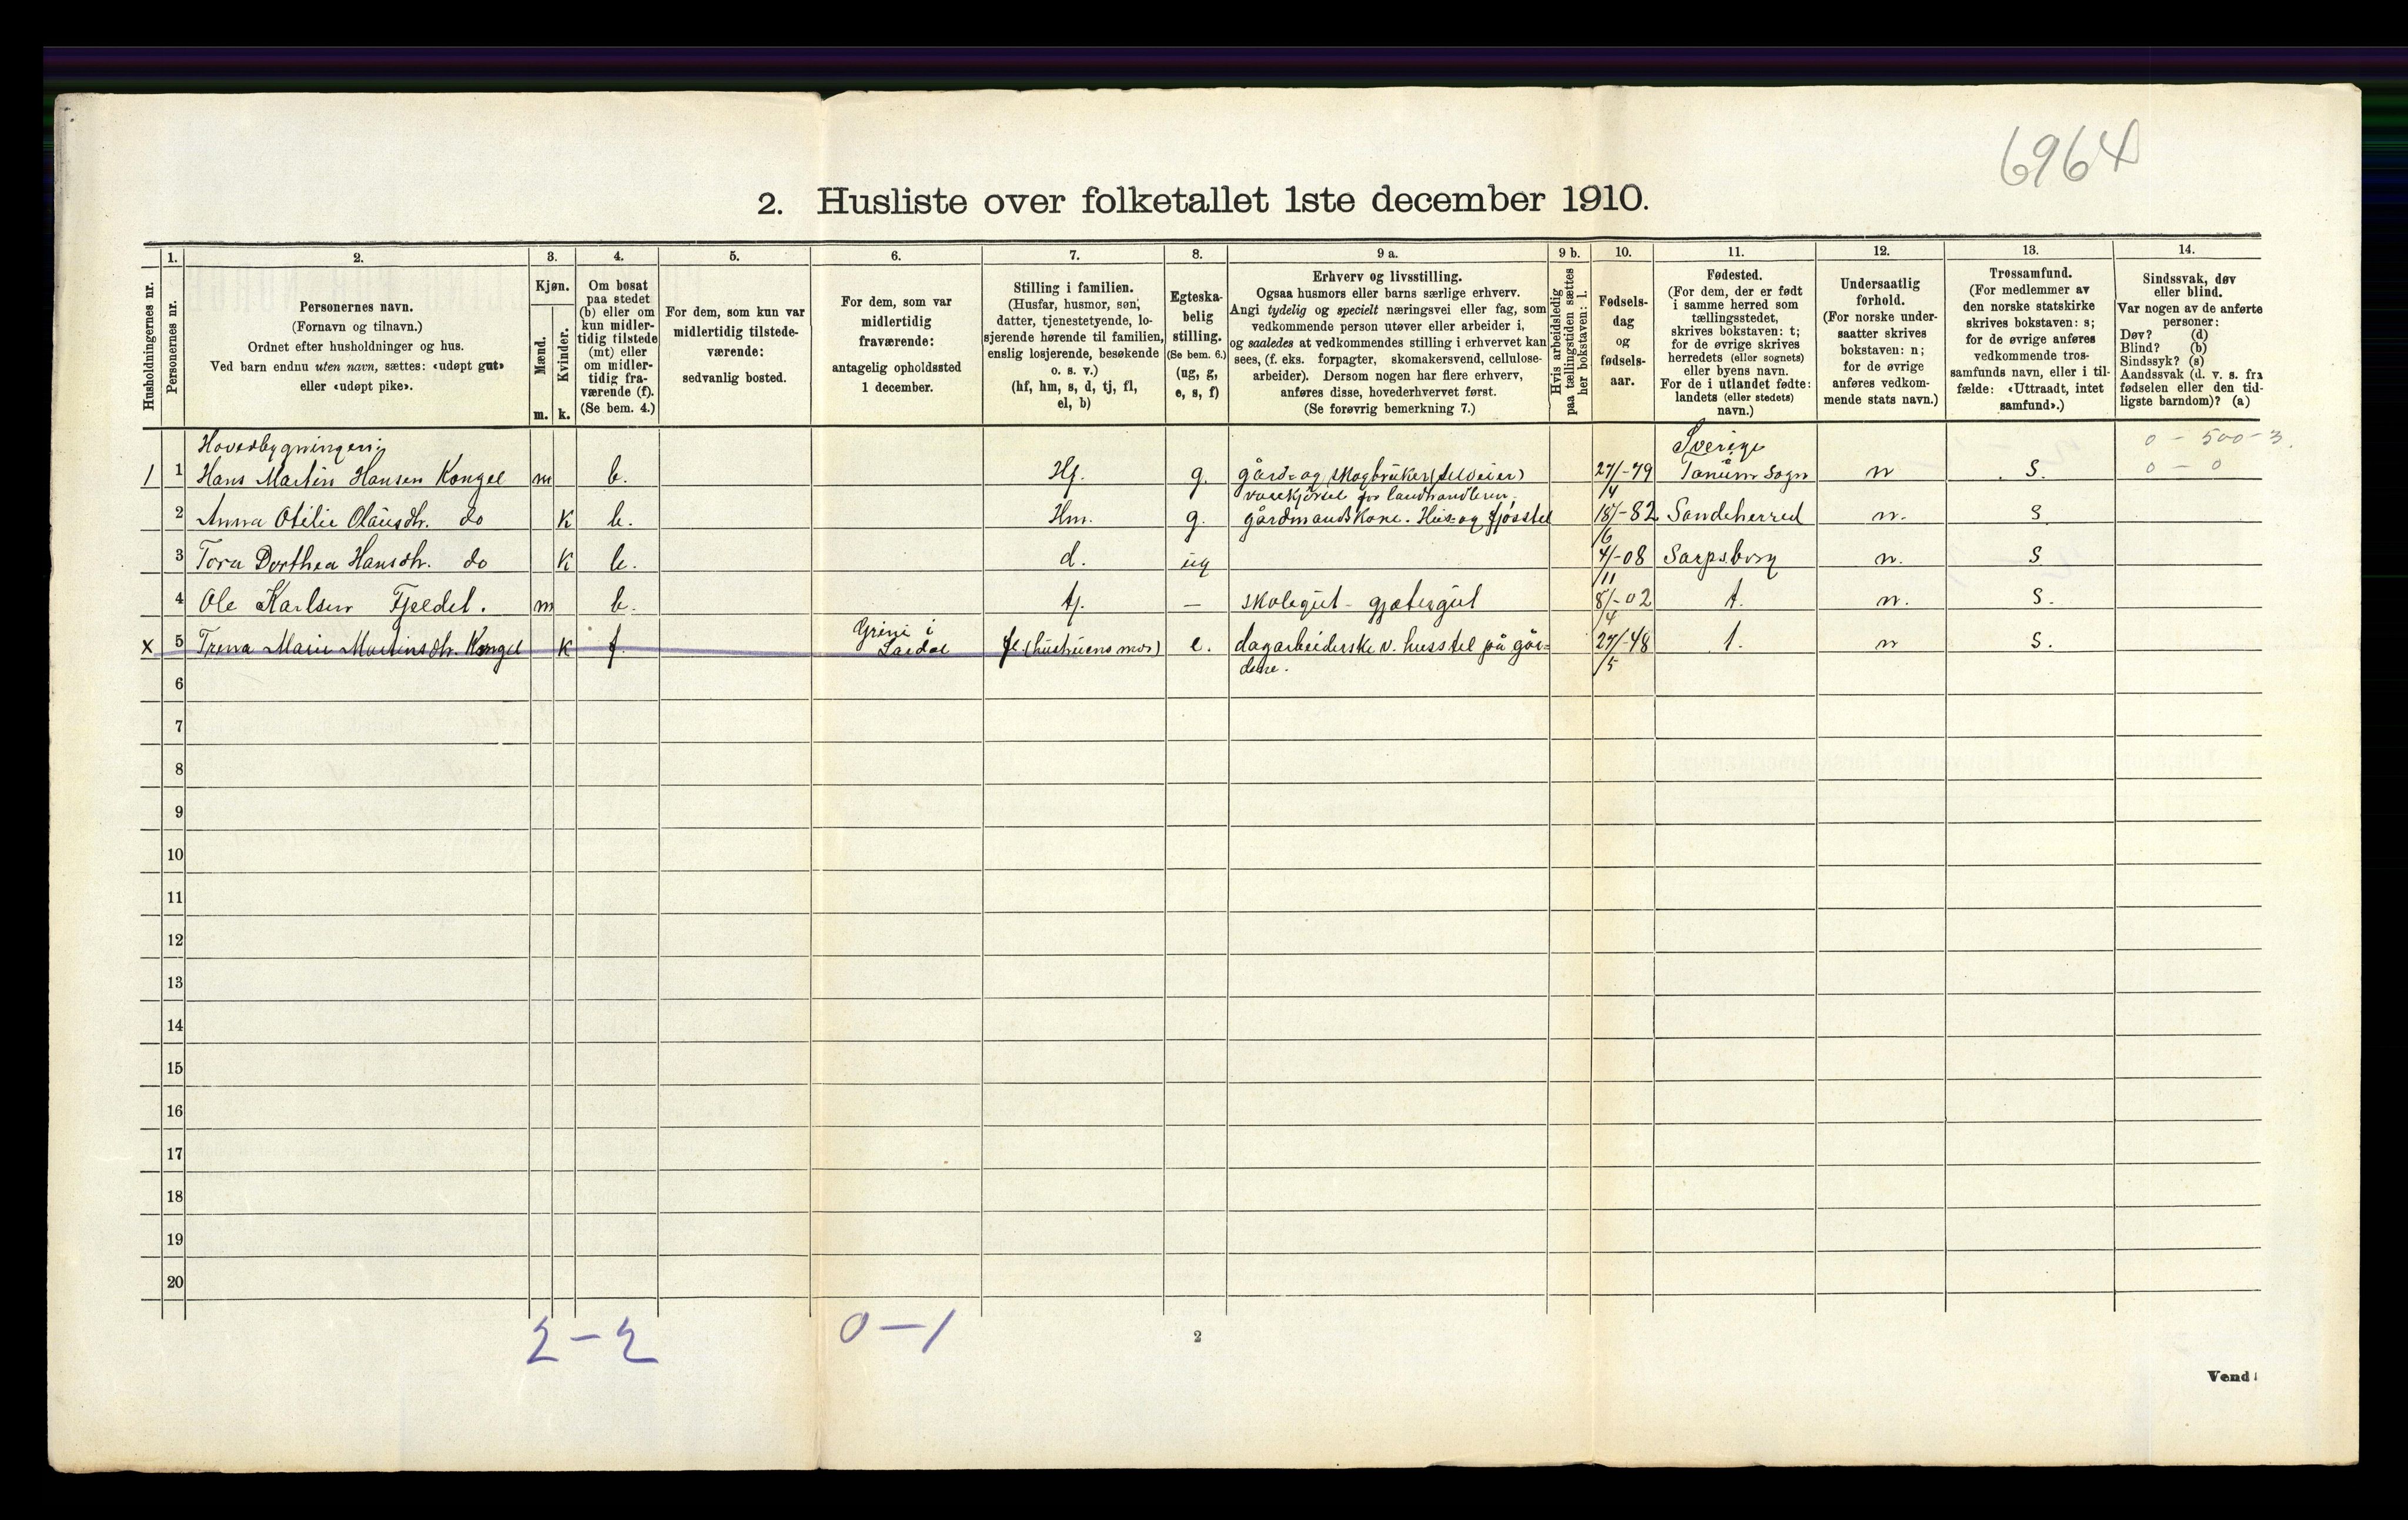 6964
2. Husliste over folketallet 1ste december 1910.
Husholdningernes nr.
1.
Personernes nr.
2.
Personernes navn.
(Fornavn og tilnavn.)
Ordnet efter husholdninger og hus.
Ved barn endnu uten navn, sættes: «udøpt gut»
eller «udøpt pike».
3.
Kjøn.
Mænd.
Kvinder.
m. k.
4.
Om bosat
paa stedet
(b) eller om
kun midler-
tidig tilstede
(mt) eller
om midler-
tidig fra-
værende (f).
(Se bem. 4.)
5.
For dem, som kun var
midlertidig tilstede-
værende:
sedvanlig bosted.
6.
For dem, som var
midlertidig
fraværende:
antagelig opholdssted
1 december.
7.
Stilling i familien.
(Husfar, husmor, søn,
datter, tjenestetyende, lo-
sjerende hørende til familien,
enslig losjerende, besøkende
o. s. v.)
(hf, hm, s, d, tj, fl,
el, b)
8.
Egteska-
belig
stilling.
(Se bem. 6.)
(ug, g,
e, s, f)
9 a.
Erhverv og livsstilling.
Ogsaa husmors eller barns særlige erhverv.
Angi tydelig og specielt næringsvei eller fag, som
vedkommende person utøver eller arbeider i,
og saaledes at vedkommendes stilling i erhvervet kan
sees, (f. eks. forpagter, skomakersvend, cellulose-
arbeider). Dersom nogen har flere erhverv,
anføres disse, hovederhvervet først.
(Se forøvrig bemerkning 7.)
9 b.
Hvis arbeidsledig
paa tællingstiden sættes
her bokstaven: l.
10.
Fødsels-
dag
og
fødsels-
aar.
11.
Fødested.
(For dem, der er født
i samme herred som
tællingsstedet,
skrives bokstaven: t;
for de øvrige skrives
herredets (eller sognets)
eller byens navn.
For de i utlandet fødte:
landets (eller stedets)
navn.)
12.
Undersaatlig
forhold.
(For norske under-
saatter skrives
bokstaven: n;
for de øvrige
anføres vedkom-
mende stats navn.)
13.
Trossamfund.
(For medlemmer av
den norske statskirke
skrives bokstaven: s;
for de øvrige anføres
vedkommende tros-
samfunds navn, eller i til-
fælde: «Uttraadt, intet
samfund».)
14.
Sindssvak, døv
eller blind.
Var nogen av de anførte
personer:
Døv? (d)
Blind? (b)
Sindssyk? (s)
Aandssvak (d. v. s. fra
fødselen eller den tid-
ligste barndom)? (a)
Hovedbygningen; Sverige 0 - 500-3.
1 1 Hans Martin Hansen Kongel m b. Hf. g. gård- og skogbruker (selveier) 27/4-79 Tanum Sogn n S. 0 - 0
varekjørsel for landhandlern.
2 Anna Otilie Olausdtr. do k b. Hm. g. gårdmandskone. Hus- og fjøsstel 18/6-82 Sandeherred n. S
3 Tora Dorthea Hansdtr. do k b. d. ug 4/11-08 Sarpsborg n. S
4 Ole Karlsen Fjeldet. m b. tj. — skolegut - gjætergut 8/4-02 t. n. S.
x 5 Trena Marie Martinsdtr. Kongel k f. Grini i Lardal fl (hustruens mor) e. dagarbeiderske v. husstel på går- 27/5-48 t. n S.
dene.
6
7
8
9
10
11
12
13
14
15
16
17
18
19
20
2 - 2 0 - 1
2
Vend!